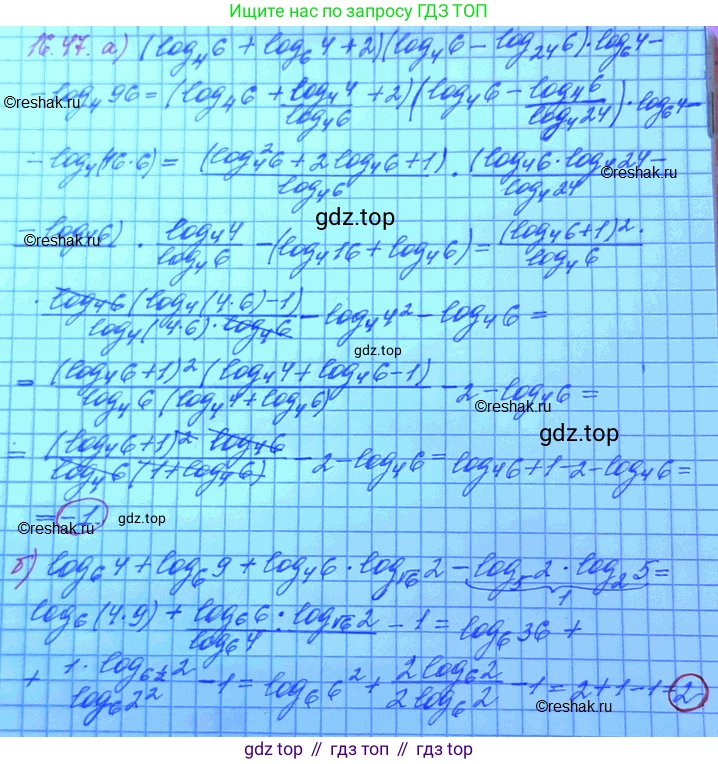 Ищите нас по запросу ГДЗ ТОП
16.47. а) (log₄6 + log₆4 + 2)(log₄6 − log₂₄6)·log₆4 −
©reshak.ru
− log₄96 = (log₄6 + log₄4/log₄6 + 2)(log₄6 − log₄6/log₄24)·log₆4 −
©reshak.ru
− log₄(16·6) = (log₄²6 + 2log₄6 + 1)/log₄6 · (log₄6·log₄24 −
©reshak.ru
gdz.top
− log₄6)/log₄24 · log₄4/log₄6 − (log₄16 + log₄6) = (log₄6+1)²/log₄6 ·
©reshak.ru
· log₄6(log₄(4·6)−1)/log₄(4·6)·log₄6 − log₄4² − log₄6 =
gdz.top
= (log₄6+1)²(log₄4 + log₄6−1)/log₄6(log₄4+log₄6) − 2 − log₄6 =
©reshak.ru
gdz.top
= (log₄6+1)² log₄6/log₄6(1+log₄6) − 2 − log₄6 = log₄6+1−2−log₄6 =
= −1.
gdz.top
©reshak.ru
б) log₆4 + log₆9 + log₄6·log√6 2 − log₅2·log₂5 =
©reshak.ru
1
log₆(4·9) + log₆6·log√6 2/log₆4 − 1 = log₆36 +
+ 1·log₆^½ 2/log₆2² − 1 = log₆6² + 2log₆2/2log₆2 − 1 = 2+1−1=2
©reshak.ru
gdz.top // гдз.топ // gdz.top